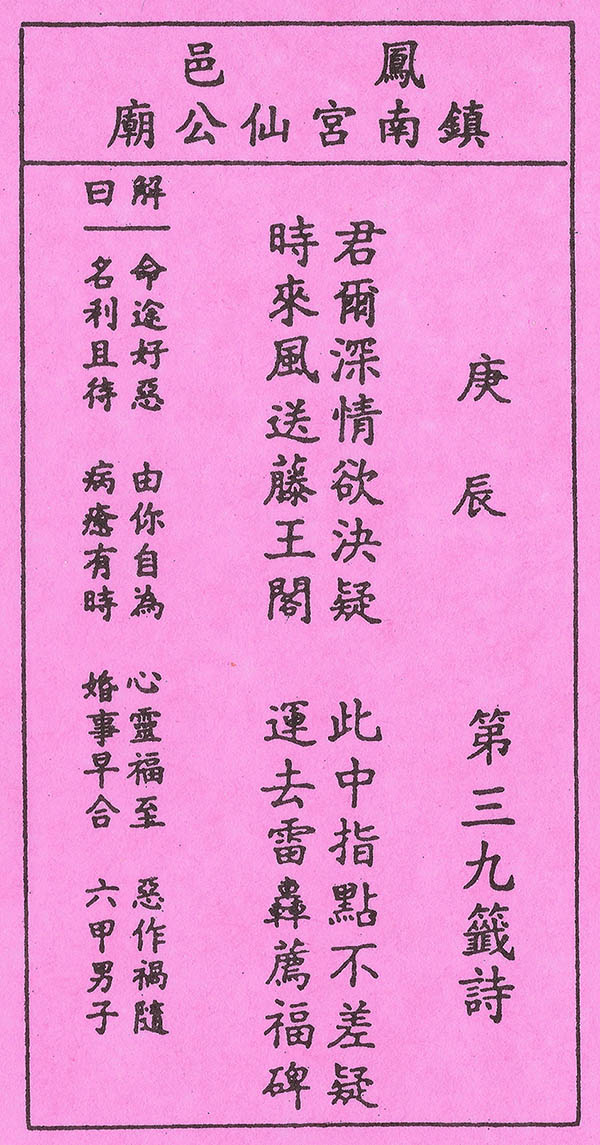 鳳邑
鎮南宮仙公廟
庚辰 第三九籤詩
君爾深情欲決疑 此中指點不差疑
時來風送藤王閣 運去雷轟薦福碑
解曰
命途好惡 由你自為 心靈福至 惡作禍隨
名利且待 病癒有時 婚事早合 六甲男子